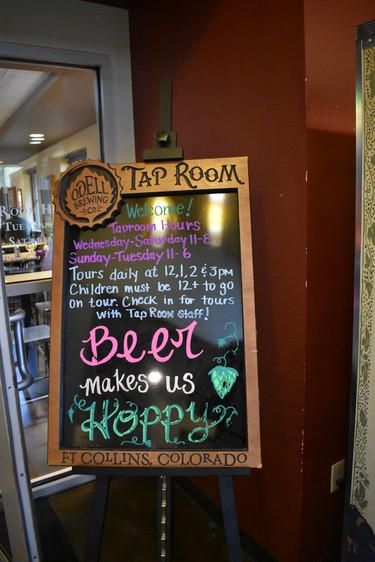 ODELL
BREWING
Co
TAP ROOM
Welcome!
Taproom Hours
Wednesday-Saturday 11-8
Sunday-Tuesday 11-6
Tours daily at 12,1,2 & 3pm
Children must be 12+ to go
on tour. Check in for tours
with Tap Room staff!
Beer
makes us
Hoppy
FT COLLINS, COLORADO